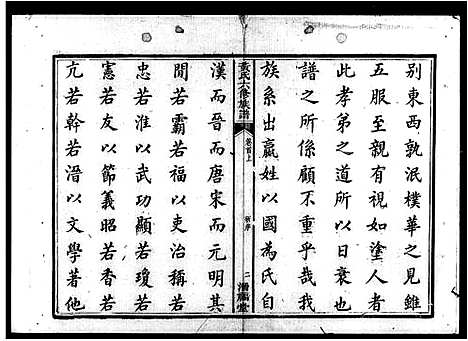 别東西孰泯樸華之見雖
五服至親有視如塗人者
此孝弟之道所以日衰也
譜之所係顧不重乎哉我
族系出嬴姓以國為氏自
黃氏六修族譜
卷首上
新序
二
漢而晉而唐宋而元明其
間若霸若福以吏治稱若
忠若淮以武功顯若瓊若
憲若友以節義昭若香若
亢若幹若溍以文學著他